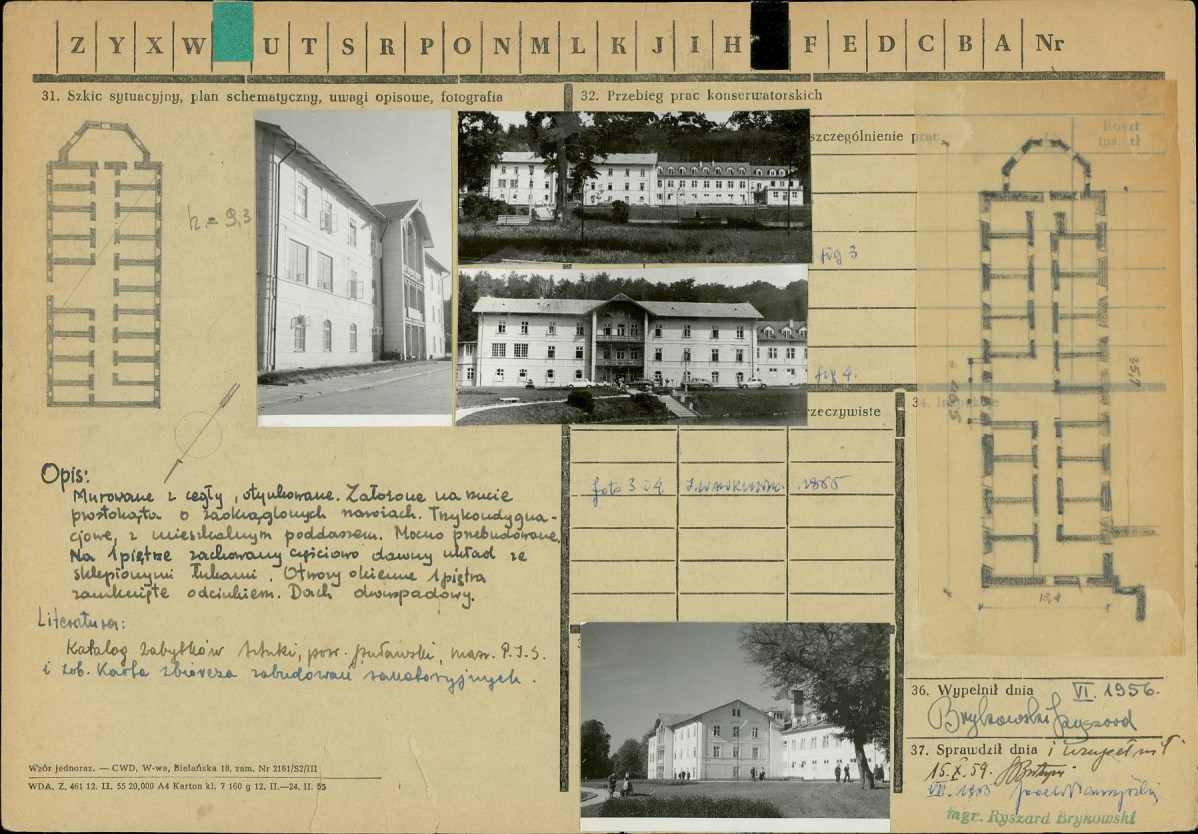 Z Y X W U T S R P O N M L K J I H F E D C B A Nr
31. Szkic sytuacyjny, plan schematyczny, uwagi opisowe, fotografia
32. Przebieg prac konserwatorskich
szczególnienie prac
Koszt
tys. zł
h = 9,3
fig 3
fig 4.
rzeczywiste
foto 3 i 4.
Opis:
Murowane z cegły, otynkowane. Założone na rzucie
prostokąta o zaokrąglonych narożach. Trzykondygna-
cjowe, z mieszkalnym poddaszem. Mocno przebudowane.
Na 1 piętrze zachowany częściowo dawny układ ze
sklepionymi łukami. Otwory okienne 1 piętra
zamknięte odcinkiem. Dach dwuspadowy.
Literatura:
Katalog Zabytków Sztuki, pow. puławski, masz. P.I.S.
i zob. Karta zbiorcza zabudowań sanatoryjnych.
36. Wypełnił dnia VI. 1956.
Brykowski Ryszard
37. Sprawdził dnia i uzupełnił
15.X.59.
mgr. Ryszard Brykowski
Wzór jednoraz. — CWD, W-wa, Bielańska 18, zam. Nr 2161/S2/III
WDA. Z. 461 12. II. 55 20,000 A4 Karton kl. 7 160 g 12. II.—24. II. 55